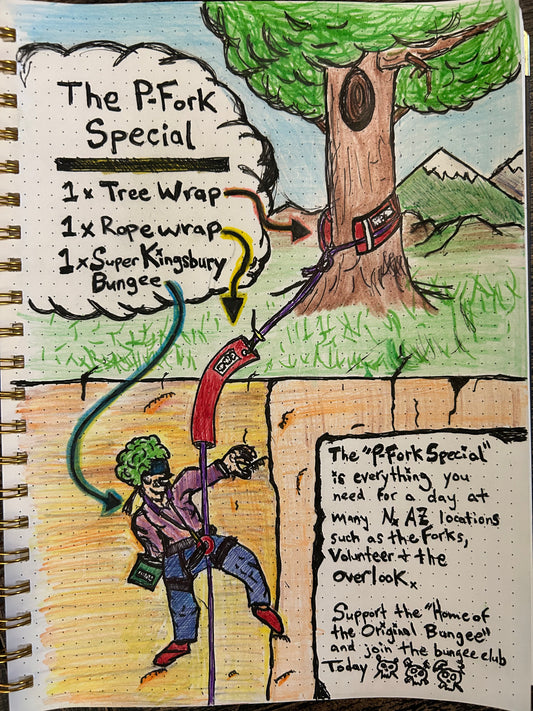 The P-Fork
Special
1x Tree Wrap
1x Rope wrap
1x Super Kingsbury
Bungee
The "P-Fork Special"
is everything you
need for a day at
many N. AZ locations
such as the Forks,
Volunteer + the
overlook.
Support the "Home of
the Original Bungee"
and join the bungee club
Today